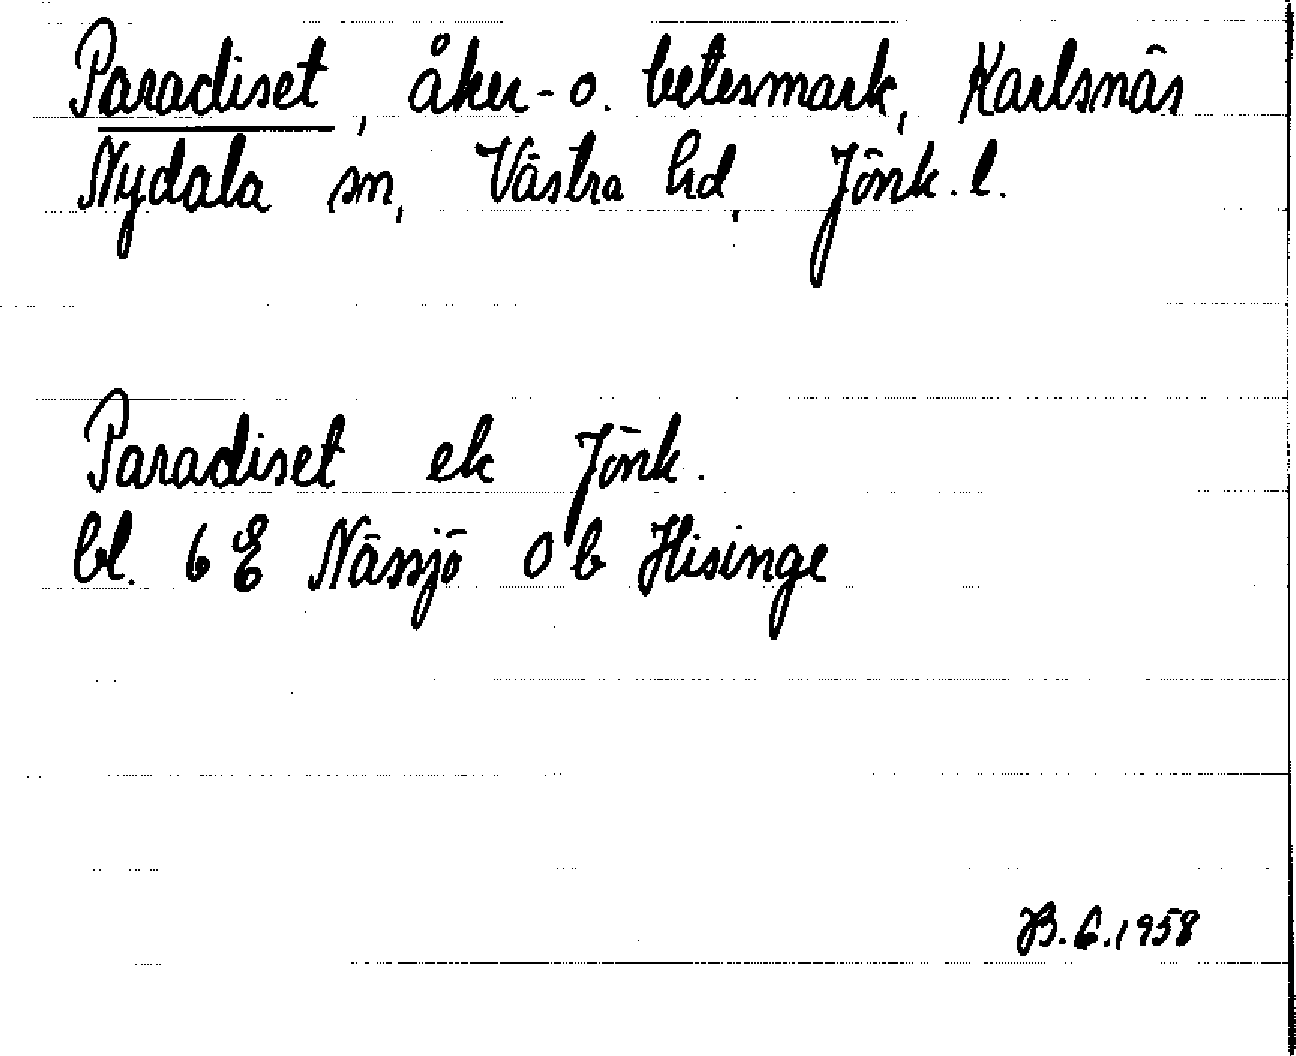 Paradiset, åker- o. betesmark, Karlsnäs
Nydala sn, Västra hd, Jönk. l.
Paradiset ek Jönk.
bl. 6 E Nässjö 0 b Hisinge
B. G. 1958